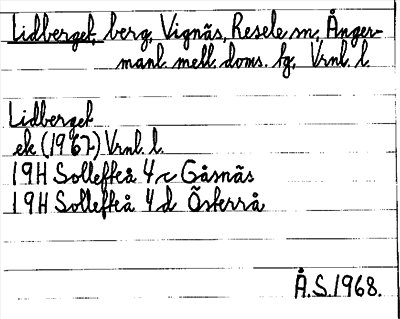 Lidberget, berg, Vignäs, Resele sn, Ånger-
manl. mell. doms. fg, Vrnl. l.
Lidberget
ek (1967) Vrnl. l.
19H Sollefteå 4c Gåsnäs
19H Sollefteå 4d Österrå
Å.S. 1968.